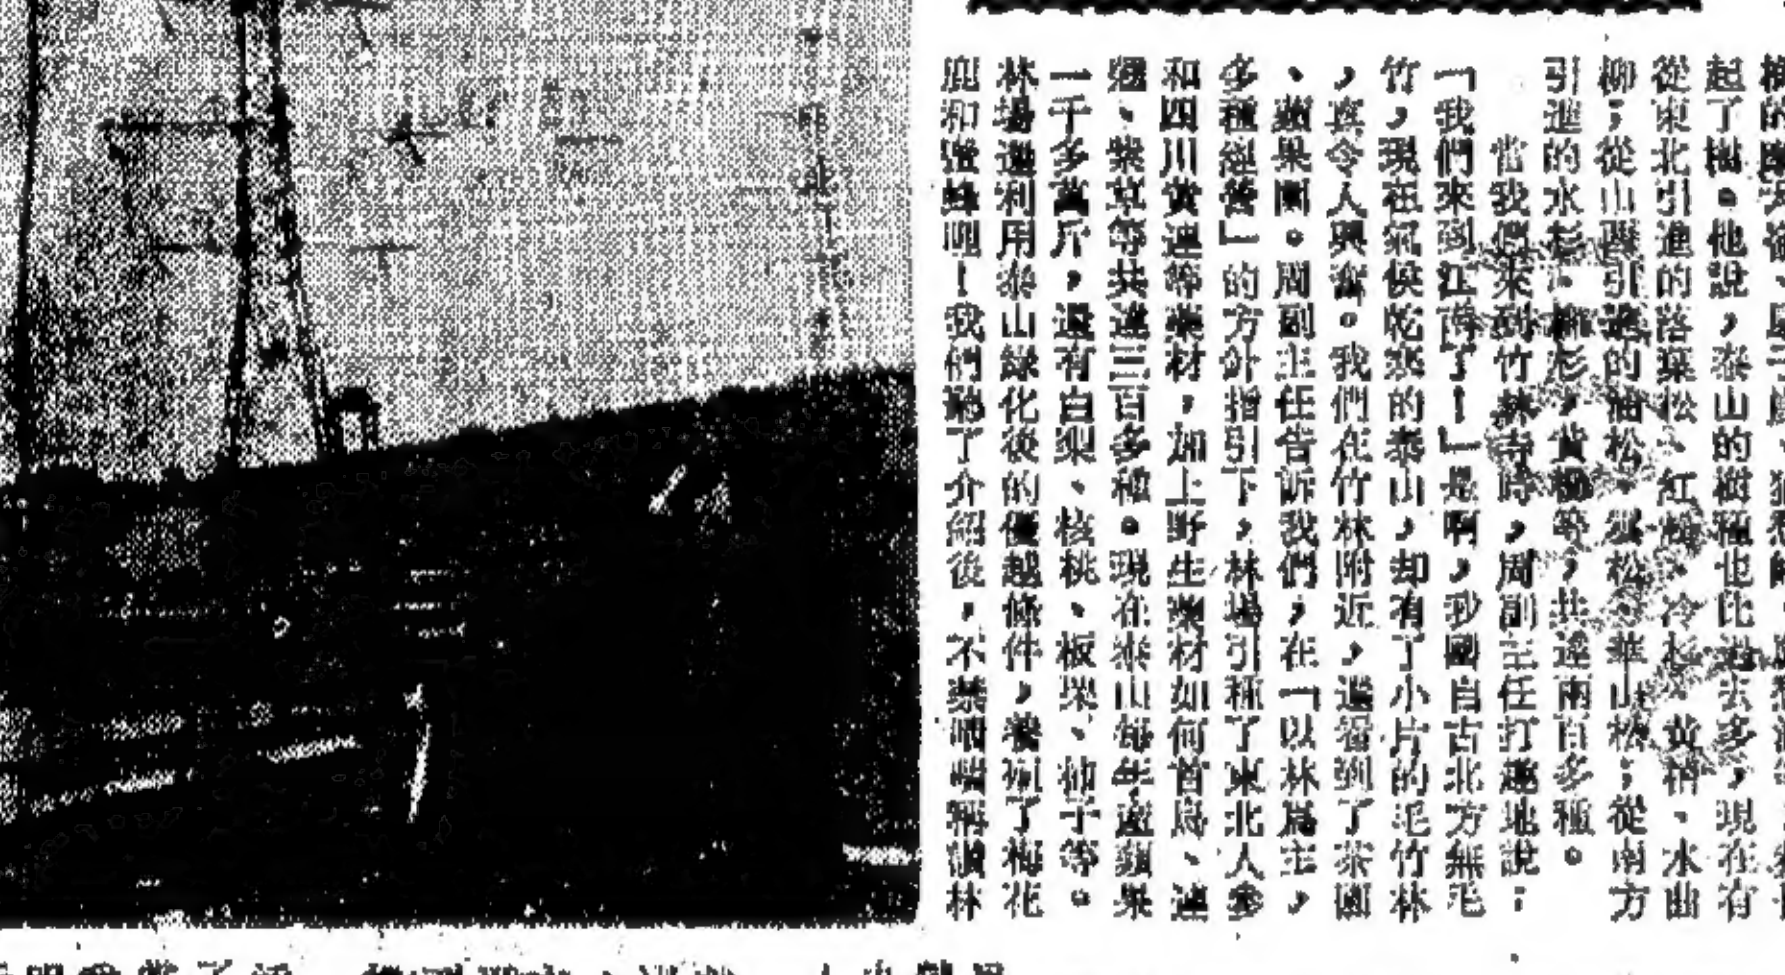 起了樹。他說，泰山的樹種也比過去多，現在有
從東北引進的落葉松、紅松、冷杉、黃楠、水曲
柳；從山西引進的油松、雲松、華山松；從南方
引進的水杉、柳杉，黃柳等，共達兩百多種。
當我們來到竹林寺時，周副主任打趣地說：
「我們來到江南了！」是啊，我國自古北方無毛
竹，現在氣候乾燥的泰山，却有了小片的毛竹林
，真令人興奮。我們在竹林附近，還看到了茶園
、蘋果園。周副主任告訴我們，在「以林爲主，
多種經營」的方針指引下，林場引種了東北人參
和四川黃連等藥材，加上野生藥材如何首烏、連
翹、紫草等共達三百多種。現在泰山每年產蘋果
一千多萬斤，還有白梨、核桃、板栗、柿子等。
林場還利用泰山綠化後的優越條件，養殖了梅花
鹿和蜜蜂呢！我們聽了介紹後，不禁嘖嘖稱讚林